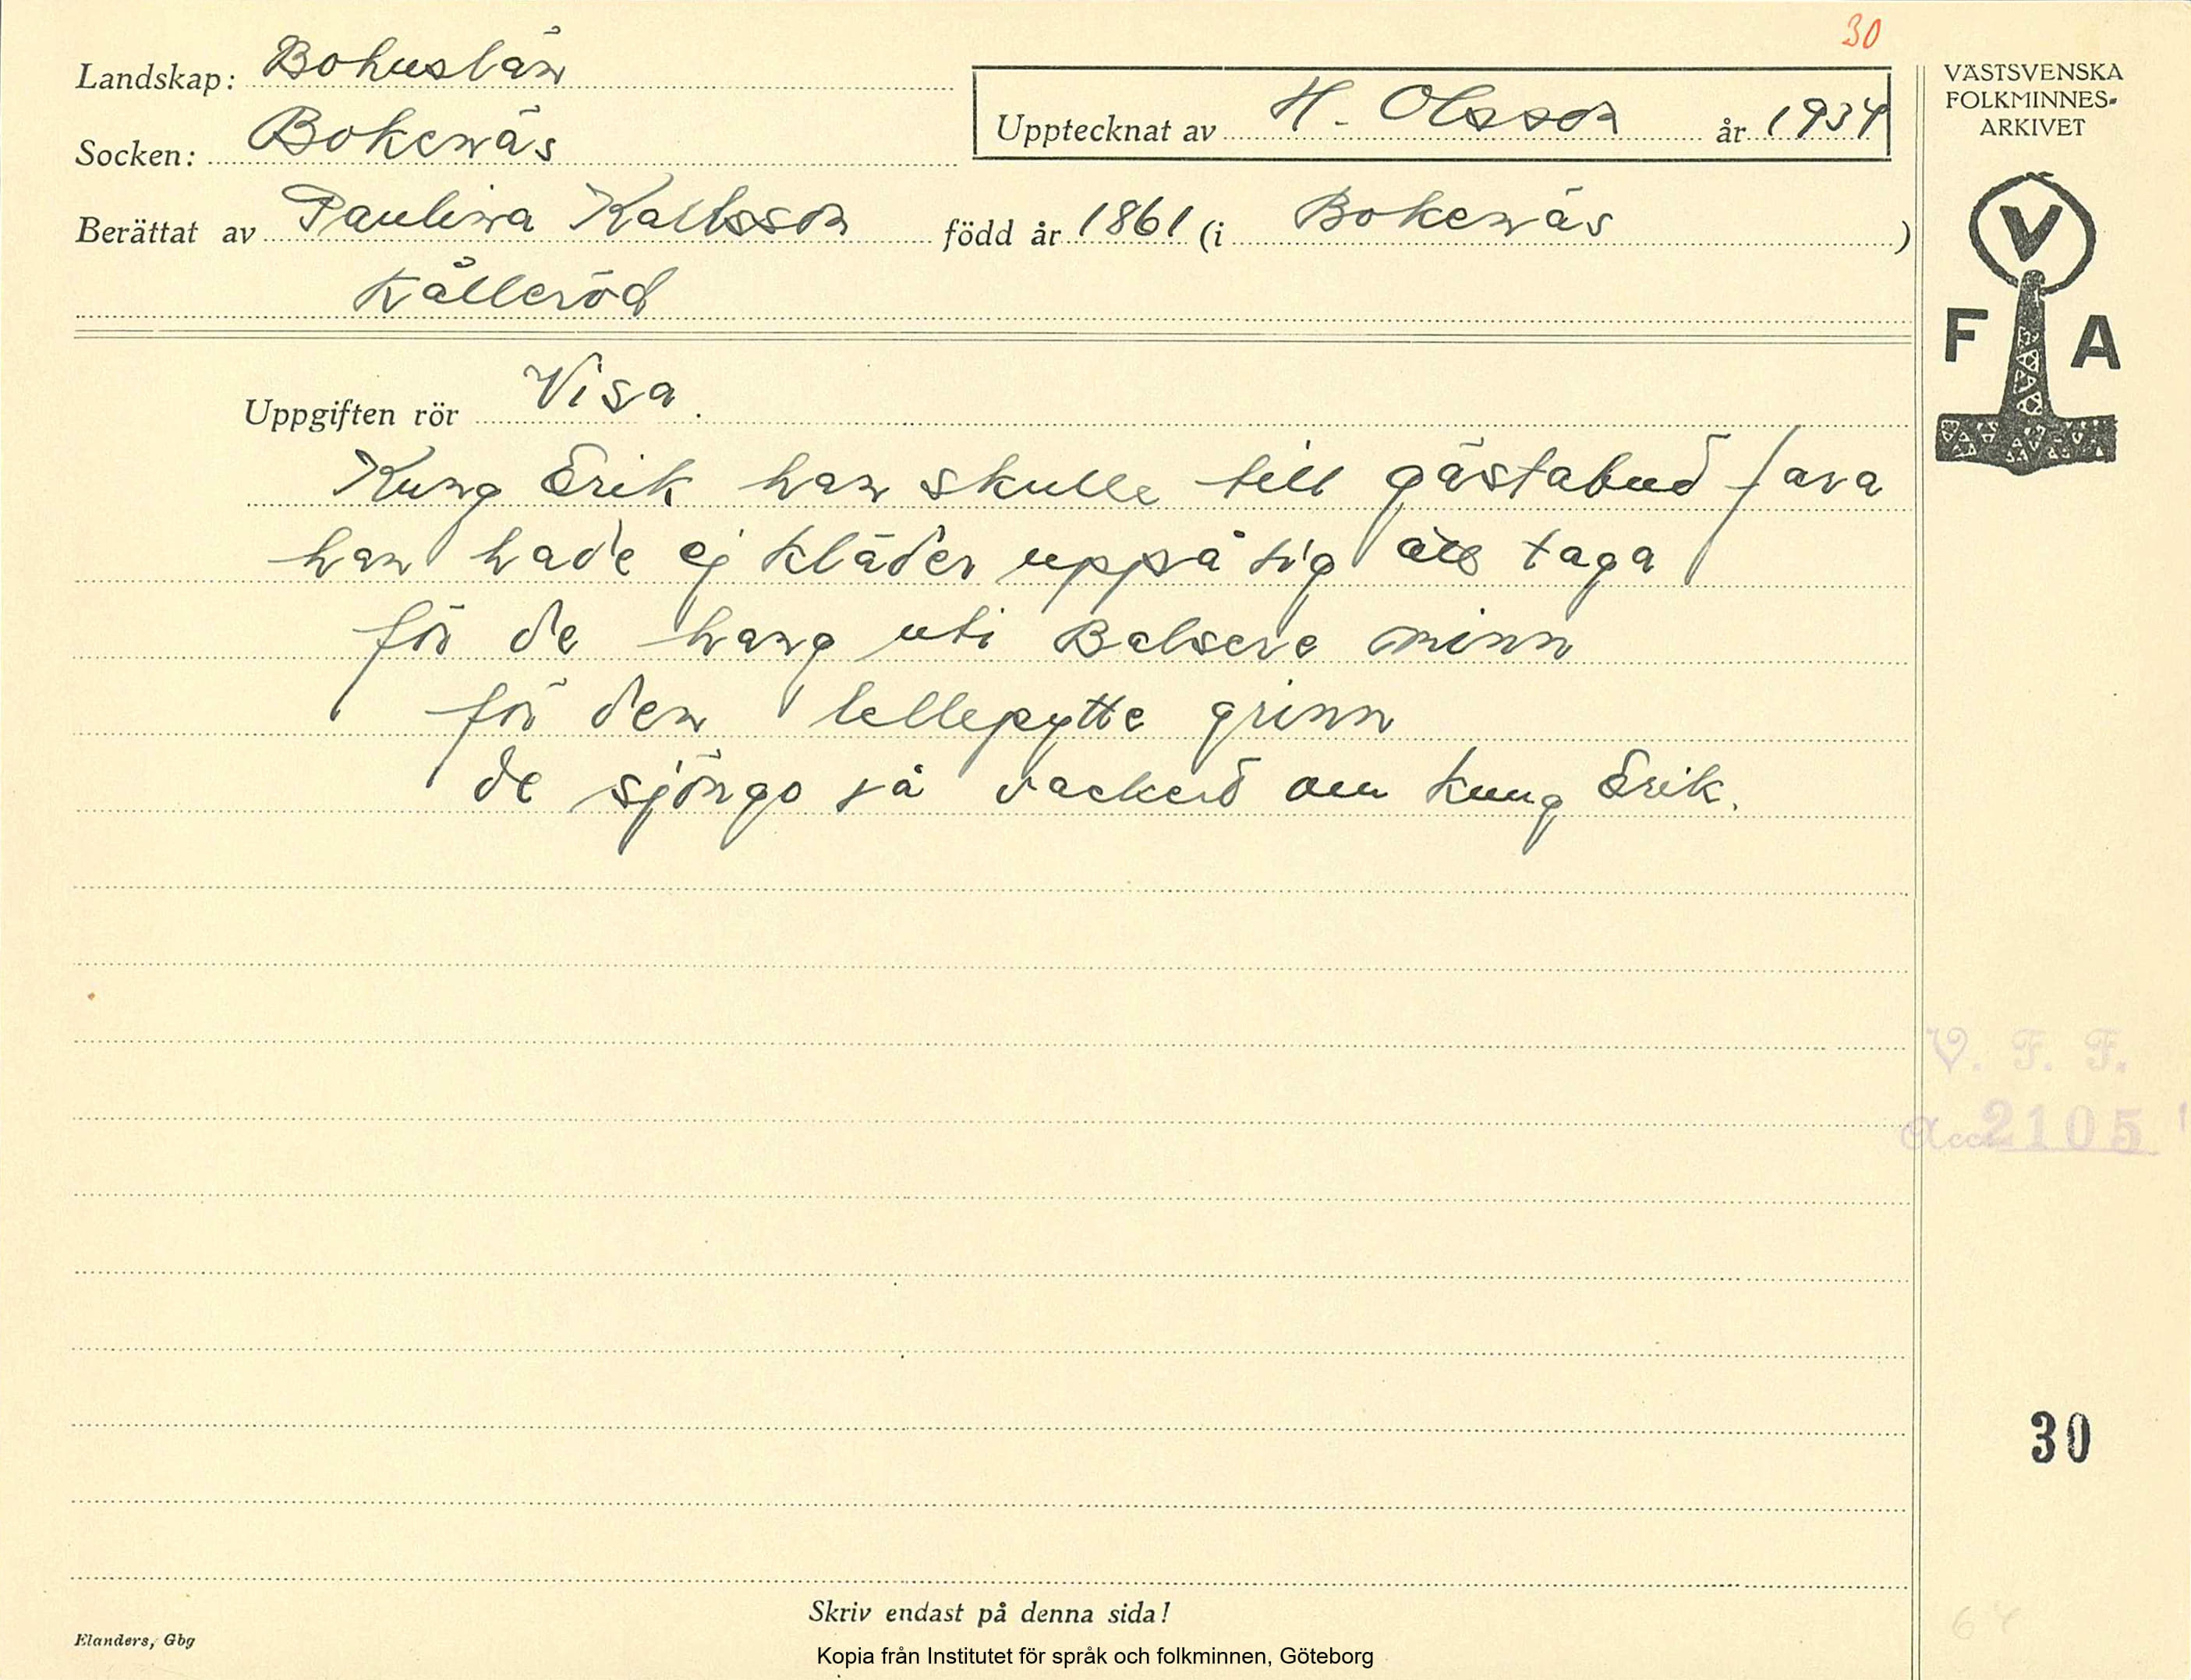 30
Landskap: Bohuslän
Socken: Bokenäs
Upptecknat av H. Olsson år 1934
VÄSTSVENSKA
FOLKMINNES-
ARKIVET
Berättat av Paulina Karlsson född år 1861 (i Bokenäs)
Kålleröd
V
F A
Uppgiften rör Visa.
Kung Erik han skulle till gästabud fara
han hade ej kläder uppå sig att taga
för de hang uti Balsere minn
för den lellepytte grinn
de sjöngo så vackert om kung Erik.
V. F. F.
Acc 2105
30
64
Skriv endast på denna sida!
Elanders, Gbg
Kopia från Institutet för språk och folkminnen, Göteborg